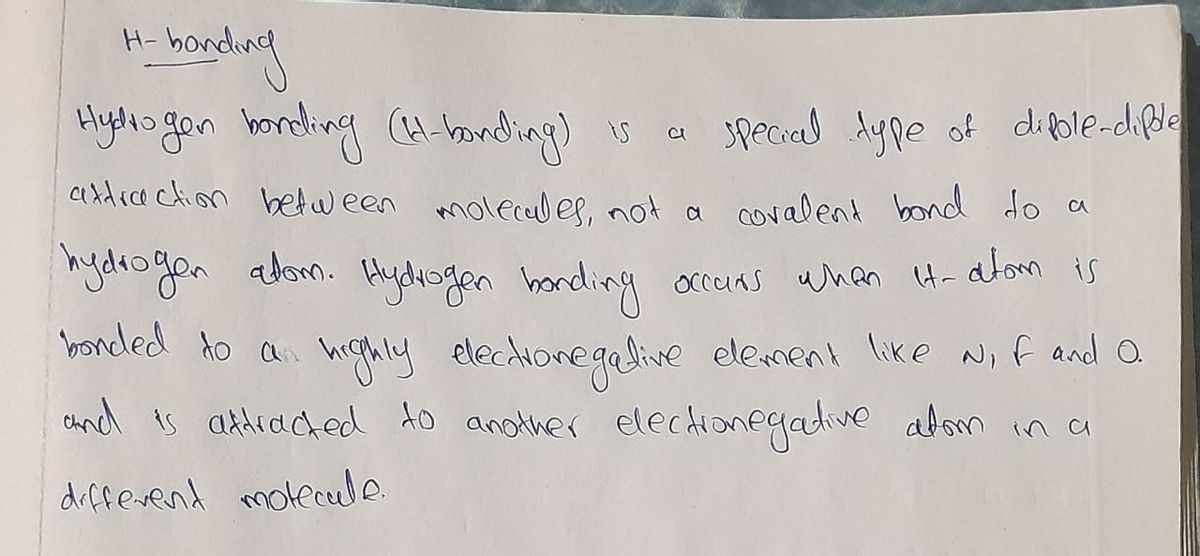 H-bonding
Hydrogen bonding (H-bonding) is a special type of dipole-dipole
attraction between molecules, not a covalent bond to a
hydrogen atom. Hydrogen bonding occurs when H-atom is
bonded to a highly electronegative element like N, F and O.
and is attracted to another electronegative atom in a
different molecule.